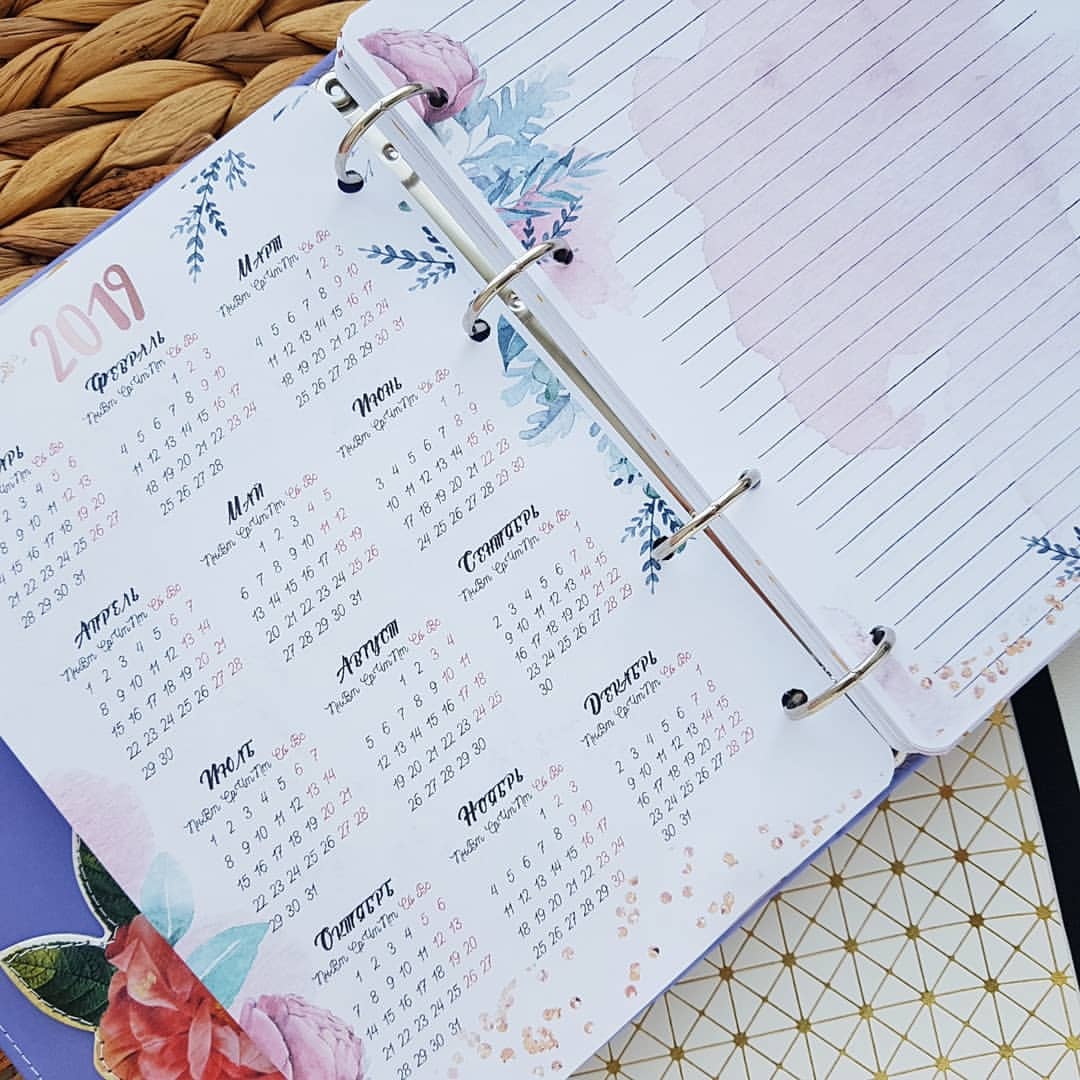 2019
АРЬ
Пт Сб Вс
2 3 4 5 6
8 9 10 11 12 13
15 16 17 18 19 20
21 22 23 24 25 26 27
28 29 30 31
Февраль
Пн Вт Ср Чт Пт Сб Вс
1 2 3
4 5 6 7 8 9 10
11 12 13 14 15 16 17
18 19 20 21 22 23 24
25 26 27 28
Март
Пн Вт Ср Чт Пт Сб Вс
1 2 3
4 5 6 7 8 9 10
11 12 13 14 15 16 17
18 19 20 21 22 23 24
25 26 27 28 29 30 31
Апрель
Пн Вт Ср Чт Пт Сб Вс
1 2 3 4 5 6 7
8 9 10 11 12 13 14
15 16 17 18 19 20 21
22 23 24 25 26 27 28
29 30
Май
Пн Вт Ср Чт Пт Сб Вс
1 2 3 4 5
6 7 8 9 10 11 12
13 14 15 16 17 18 19
20 21 22 23 24 25 26
27 28 29 30 31
Июнь
Пн Вт Ср Чт Пт Сб Вс
1 2
3 4 5 6 7 8 9
10 11 12 13 14 15 16
17 18 19 20 21 22 23
24 25 26 27 28 29 30
Июль
Пн Вт Ср Чт Пт Сб Вс
1 2 3 4 5 6 7
8 9 10 11 12 13 14
15 16 17 18 19 20 21
22 23 24 25 26 27 28
29 30 31
Август
Пн Вт Ср Чт Пт Сб Вс
1 2 3 4
5 6 7 8 9 10 11
12 13 14 15 16 17 18
19 20 21 22 23 24 25
26 27 28 29 30
Сентябрь
Пн Вт Ср Чт Пт Сб Вс
1
2 3 4 5 6 7 8
9 10 11 12 13 14 15
16 17 18 19 20 21 22
23 24 25 26 27 28 29
30
Октябрь
Пн Вт Ср Чт Пт Сб Вс
1 2 3 4 5 6
7 8 9 10 11 12 13
14 15 16 17 18 19 20
21 22 23 24 25 26 27
28 29 30 31
Ноябрь
Пн Вт Ср Чт Пт Сб Вс
1 2 3
4 5 6 7 8 9 10
11 12 13 14 15 16 17
18 19 20 21 22 23 24
25 26 27 28 29 30
Декабрь
Пн Вт Ср Чт Пт Сб Вс
1
2 3 4 5 6 7 8
9 10 11 12 13 14 15
16 17 18 19 20 21 22
23 24 25 26 27 28 29
30 31